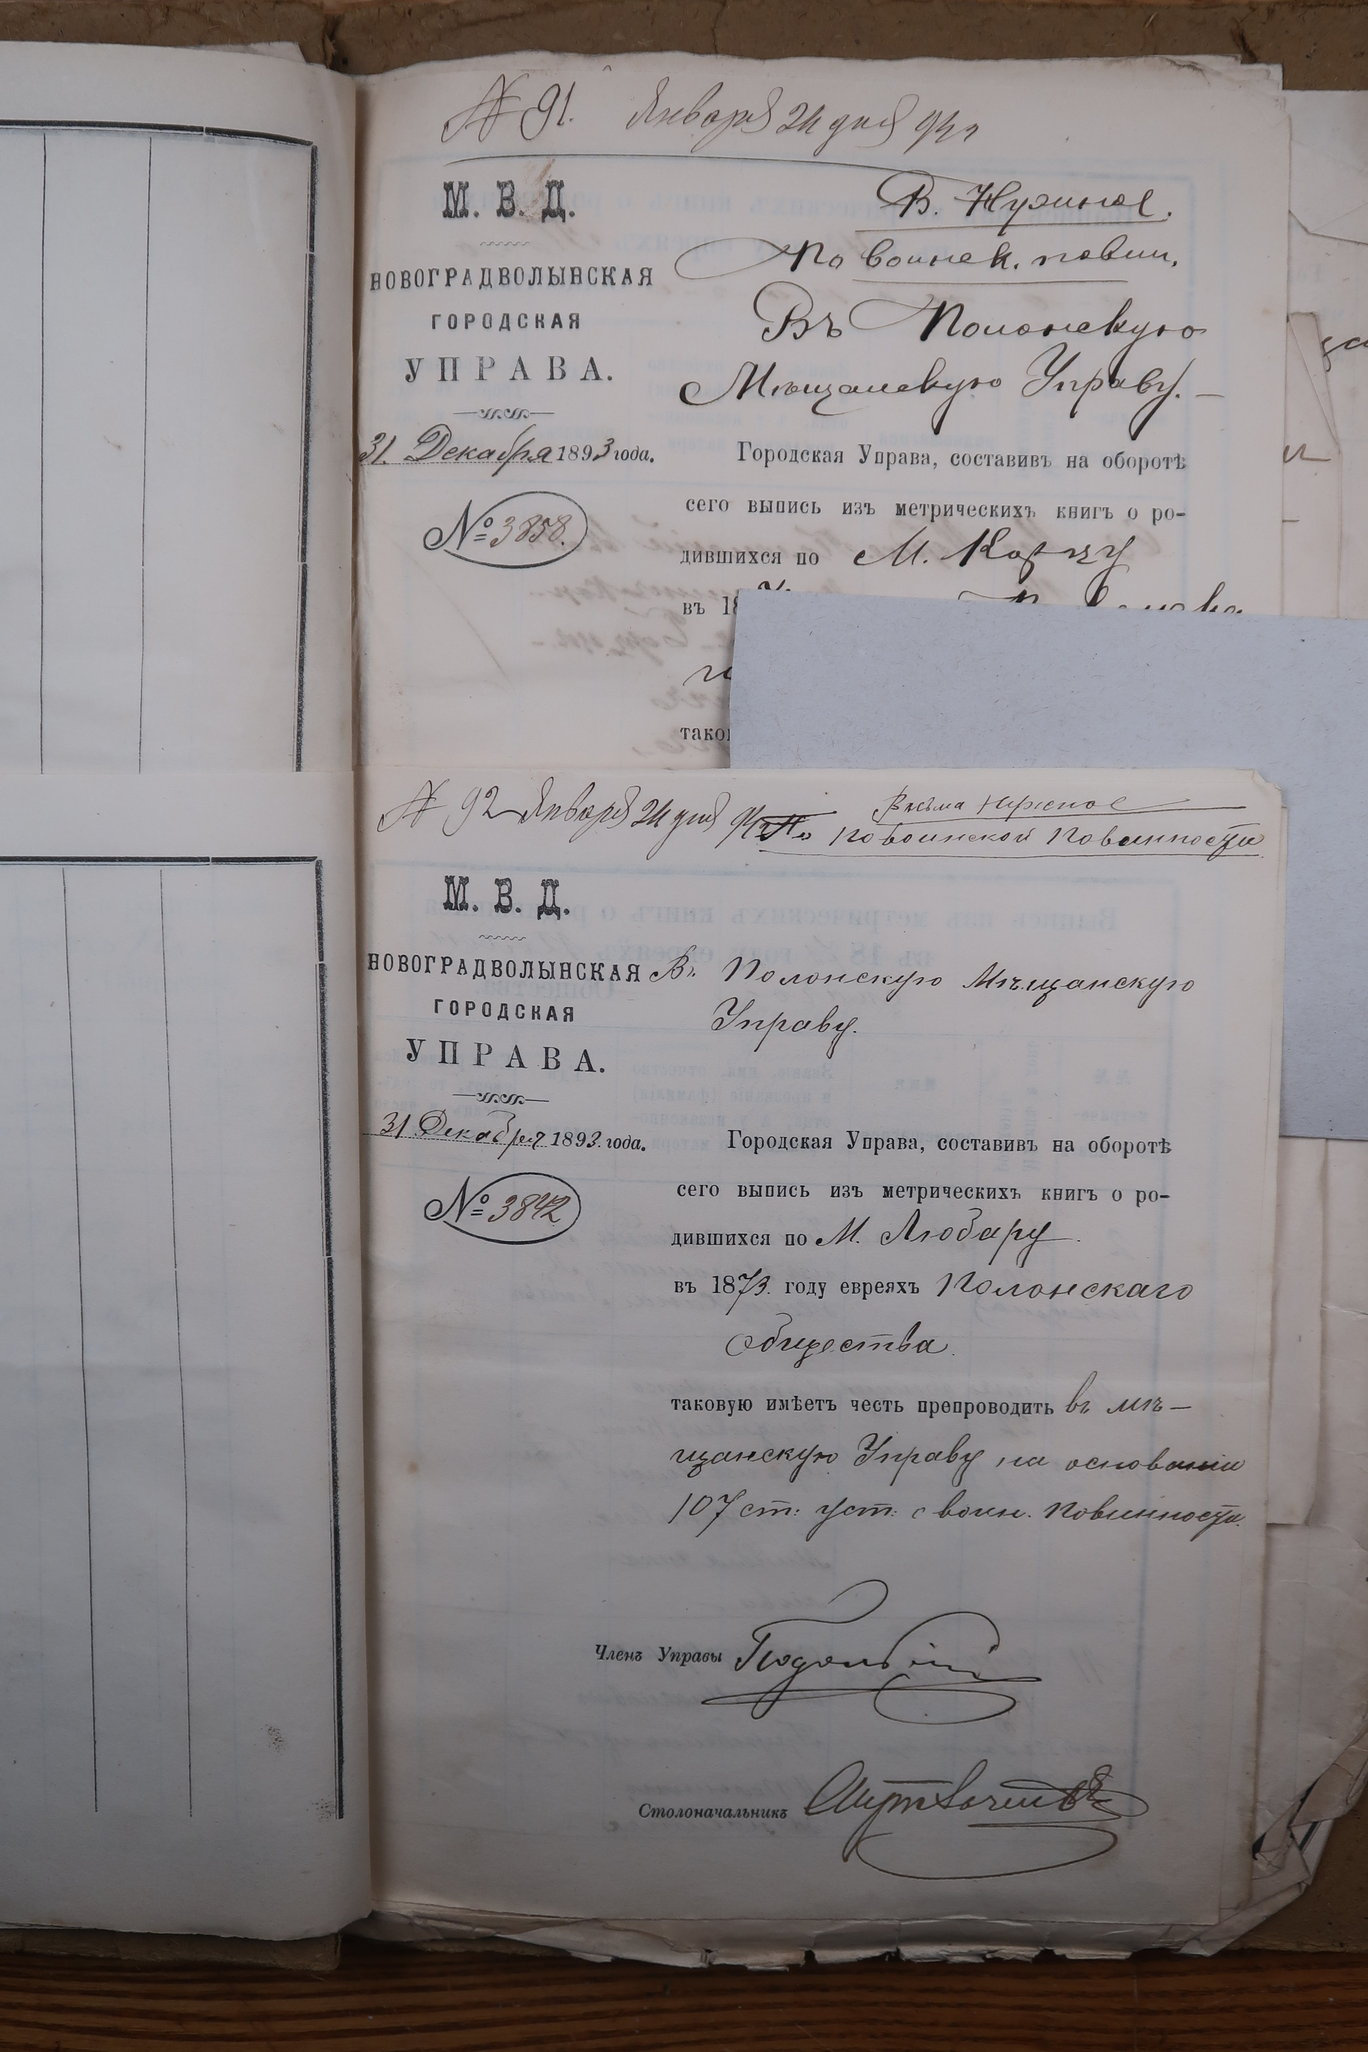 № 91. Января 24 дня 94 г
М. В. Д.
НОВОГРАДВОЛЫНСКАЯ
ГОРОДСКАЯ
УПРАВА.
31. Декабря 1893 года.
№ 3858.
В. Нужное.
По воинск. повин.
Въ Полонскую
Мѣщанскую Управу. —
Городская Управа, составивъ на оборотѣ
сего выпись изъ метрическихъ книгъ о ро-
дившихся по М. Корцу
въ 18
тако
№ 92 Января 24 дня 94 г
Весьма нужное
По воинской повинности
М. В. Д.
НОВОГРАДВОЛЫНСКАЯ
ГОРОДСКАЯ
УПРАВА.
31 Декабря 1893. года.
№ 3842
Въ Полонскую Мѣщанскую
Управу.
Городская Управа, составивъ на оборотѣ
сего выпись изъ метрическихъ книгъ о ро-
дившихся по М. Любару
въ 1873. году евреяхъ Полонскаго
общества.
таковую имѣетъ честь препроводить въ мѣ-
щанскую Управу на основании
107 ст: уст: о воин. повинности.
Членъ Управы
Столоначальникъ